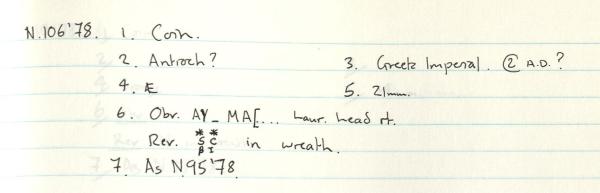 N.106'78. 1. Coin.
2. Antioch? 3. Greek Imperial. ② A.D.?
4. Æ 5. 21mm.
6. Obv. AY_ MA[... Laur. head rt.
Rev. * * S C B I in wreath.
7. As N.95'78